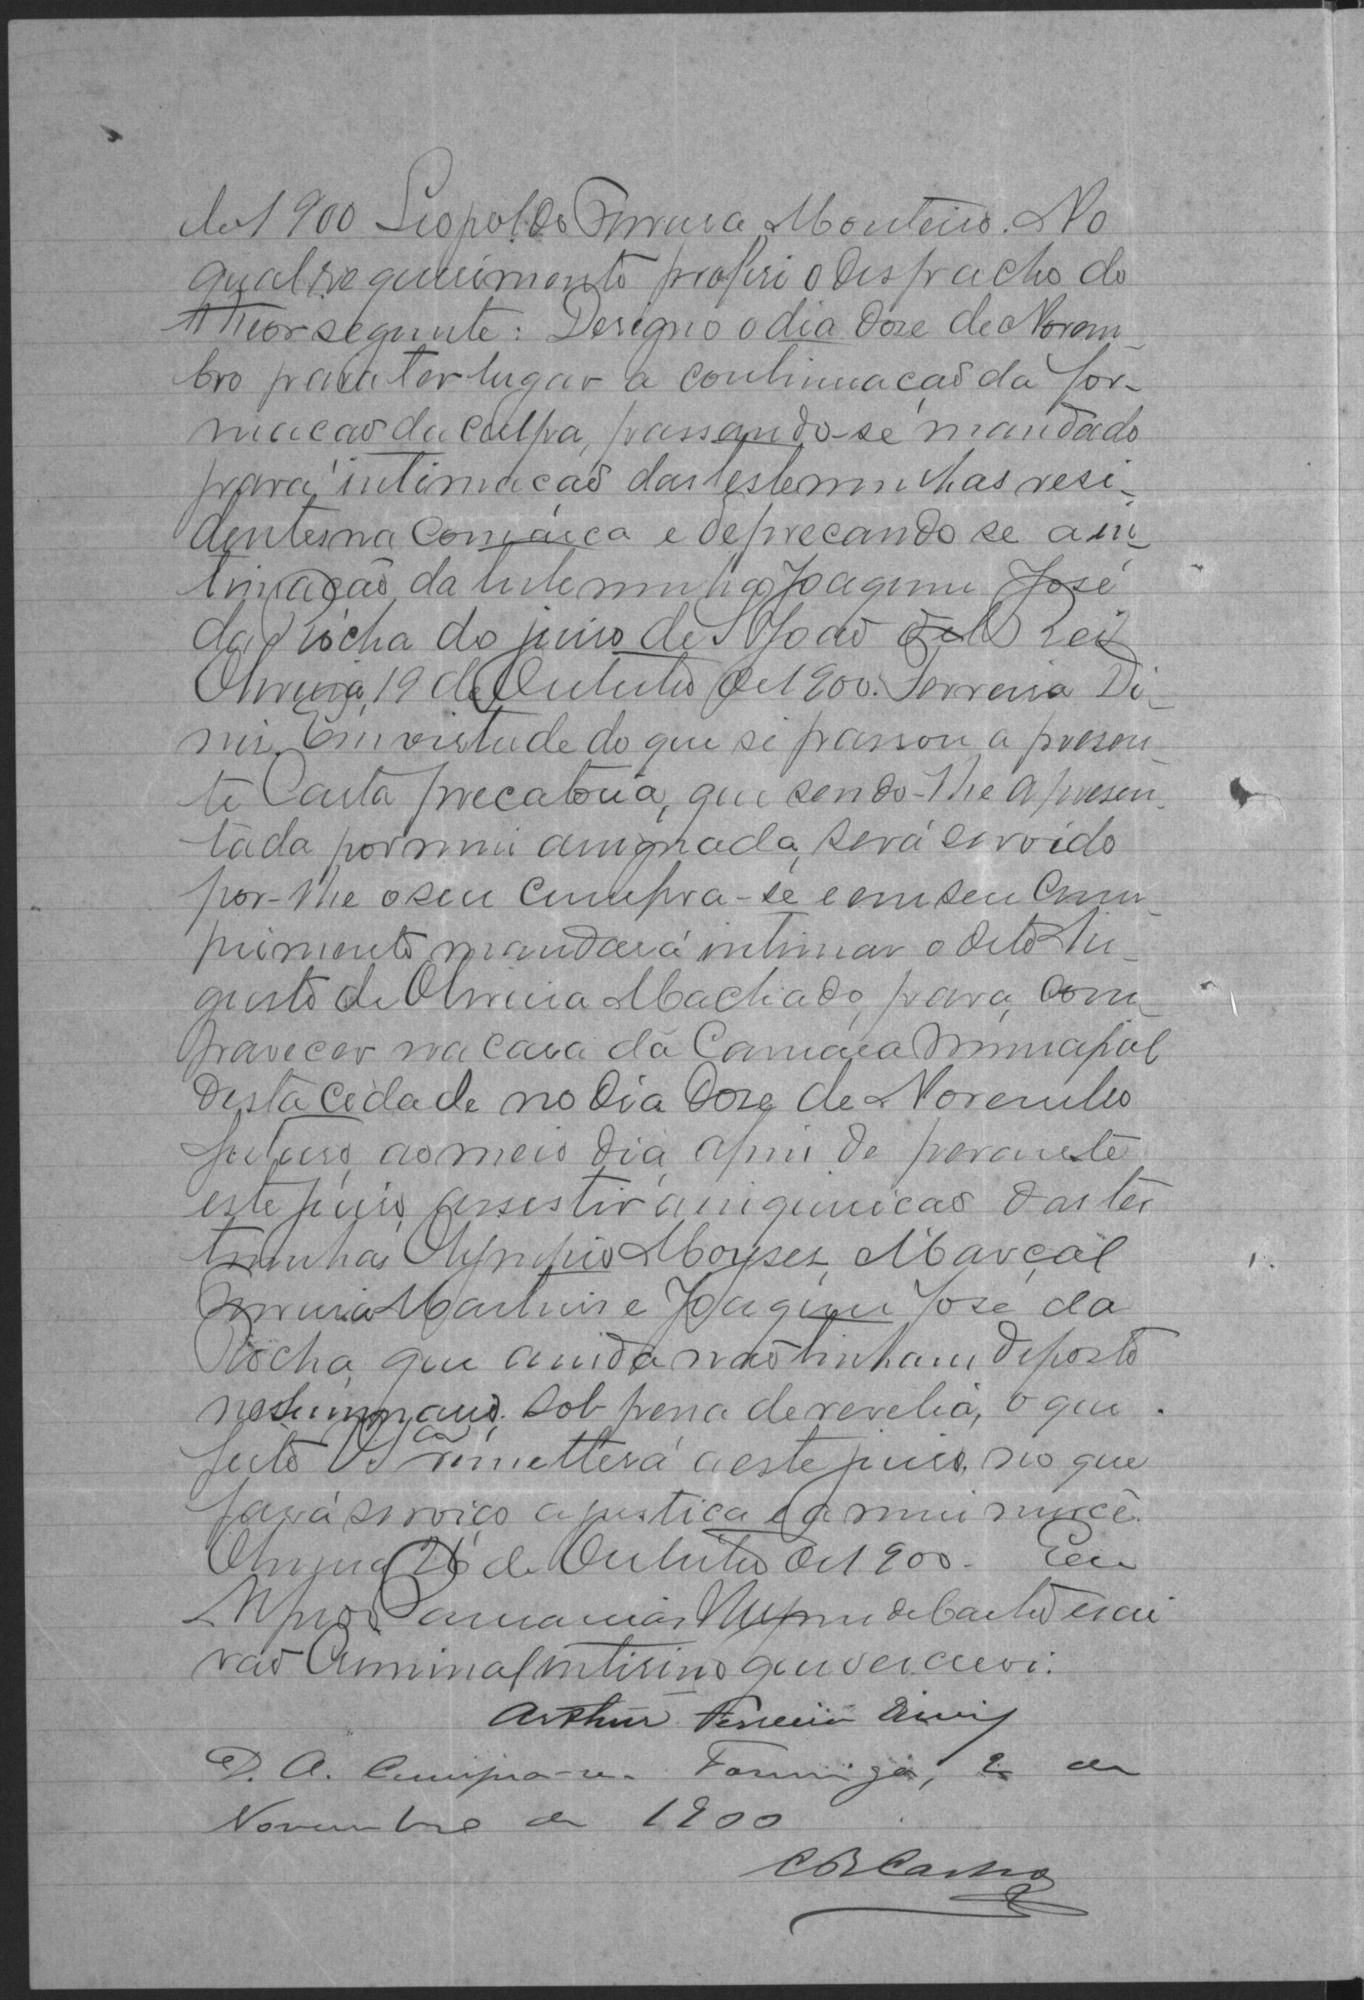 de 1900 Leopoldo Ferreira Monteiro. No
qual requerimento proferi o despacho do
theor seguinte: Designo o dia doze de Novem-
bro para ter lugar a continuação da for-
mação da culpa, passando-se mandado
para intimação das testemunhas resi-
dentes na comarca e deprecando se a in-
timação da testemunha Joaquim José
da Rocha do juiso de S. João del Rei
Oliveira, 19 de Outubro de 1900. Ferreira Di-
niz. Em virtude do que se passou a presen-
te Carta precatoria, que sendo-lhe apresen-
tada por mim assignada, será servido
por-lhe o seu cumpra-se e em seu cum-
primento mandará intimar o dito Au-
gusto de Oliveira Machado, para com-
parecer na casa da Camara Municipal
desta cidade no dia doze de Novembro
futuro, ao meio dia, afim de perante
este juiso, assistir a inquirição das tes
timunhas Olympio Moyses, Marçal
Ferreira Martins e Joaquim José da
Rocha, que ainda não tinham deposto
no summario, sob pena de revelia, o que
feito V. S.cia remetterá a este juiso, no que
fará serviço a justiça e a mim mercê.
Oliveira 26 de Outubro de 1900. Eu
de Castro escri
vão Criminal intirino que o escrevi.
Arthur Ferreira Diniz
D. A. Cumpra-se. Formiga, 2 de
Novembro de 1900
C B Castro